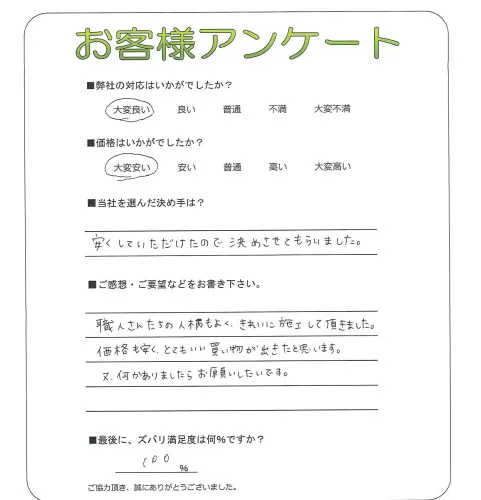 お客様アンケート
■弊社の対応はいかがでしたか？
大変良い 良い 普通 不満 大変不満
■価格はいかがでしたか？
大変安い 安い 普通 高い 大変高い
■当社を選んだ決め手は？
安くしていただけたので、決めさせてもらいました。
■ご感想・ご要望などをお書き下さい。
職人さんたちの人横もよく、きれいに施工して頂きました。
価格も安く、とてもいい買い物が出きたと思います。
又、何かありましたらお願いしたいです。
■最後に、ズバリ満足度は何％ですか？
100 %
ご協力頂き、誠にありがとうございました。